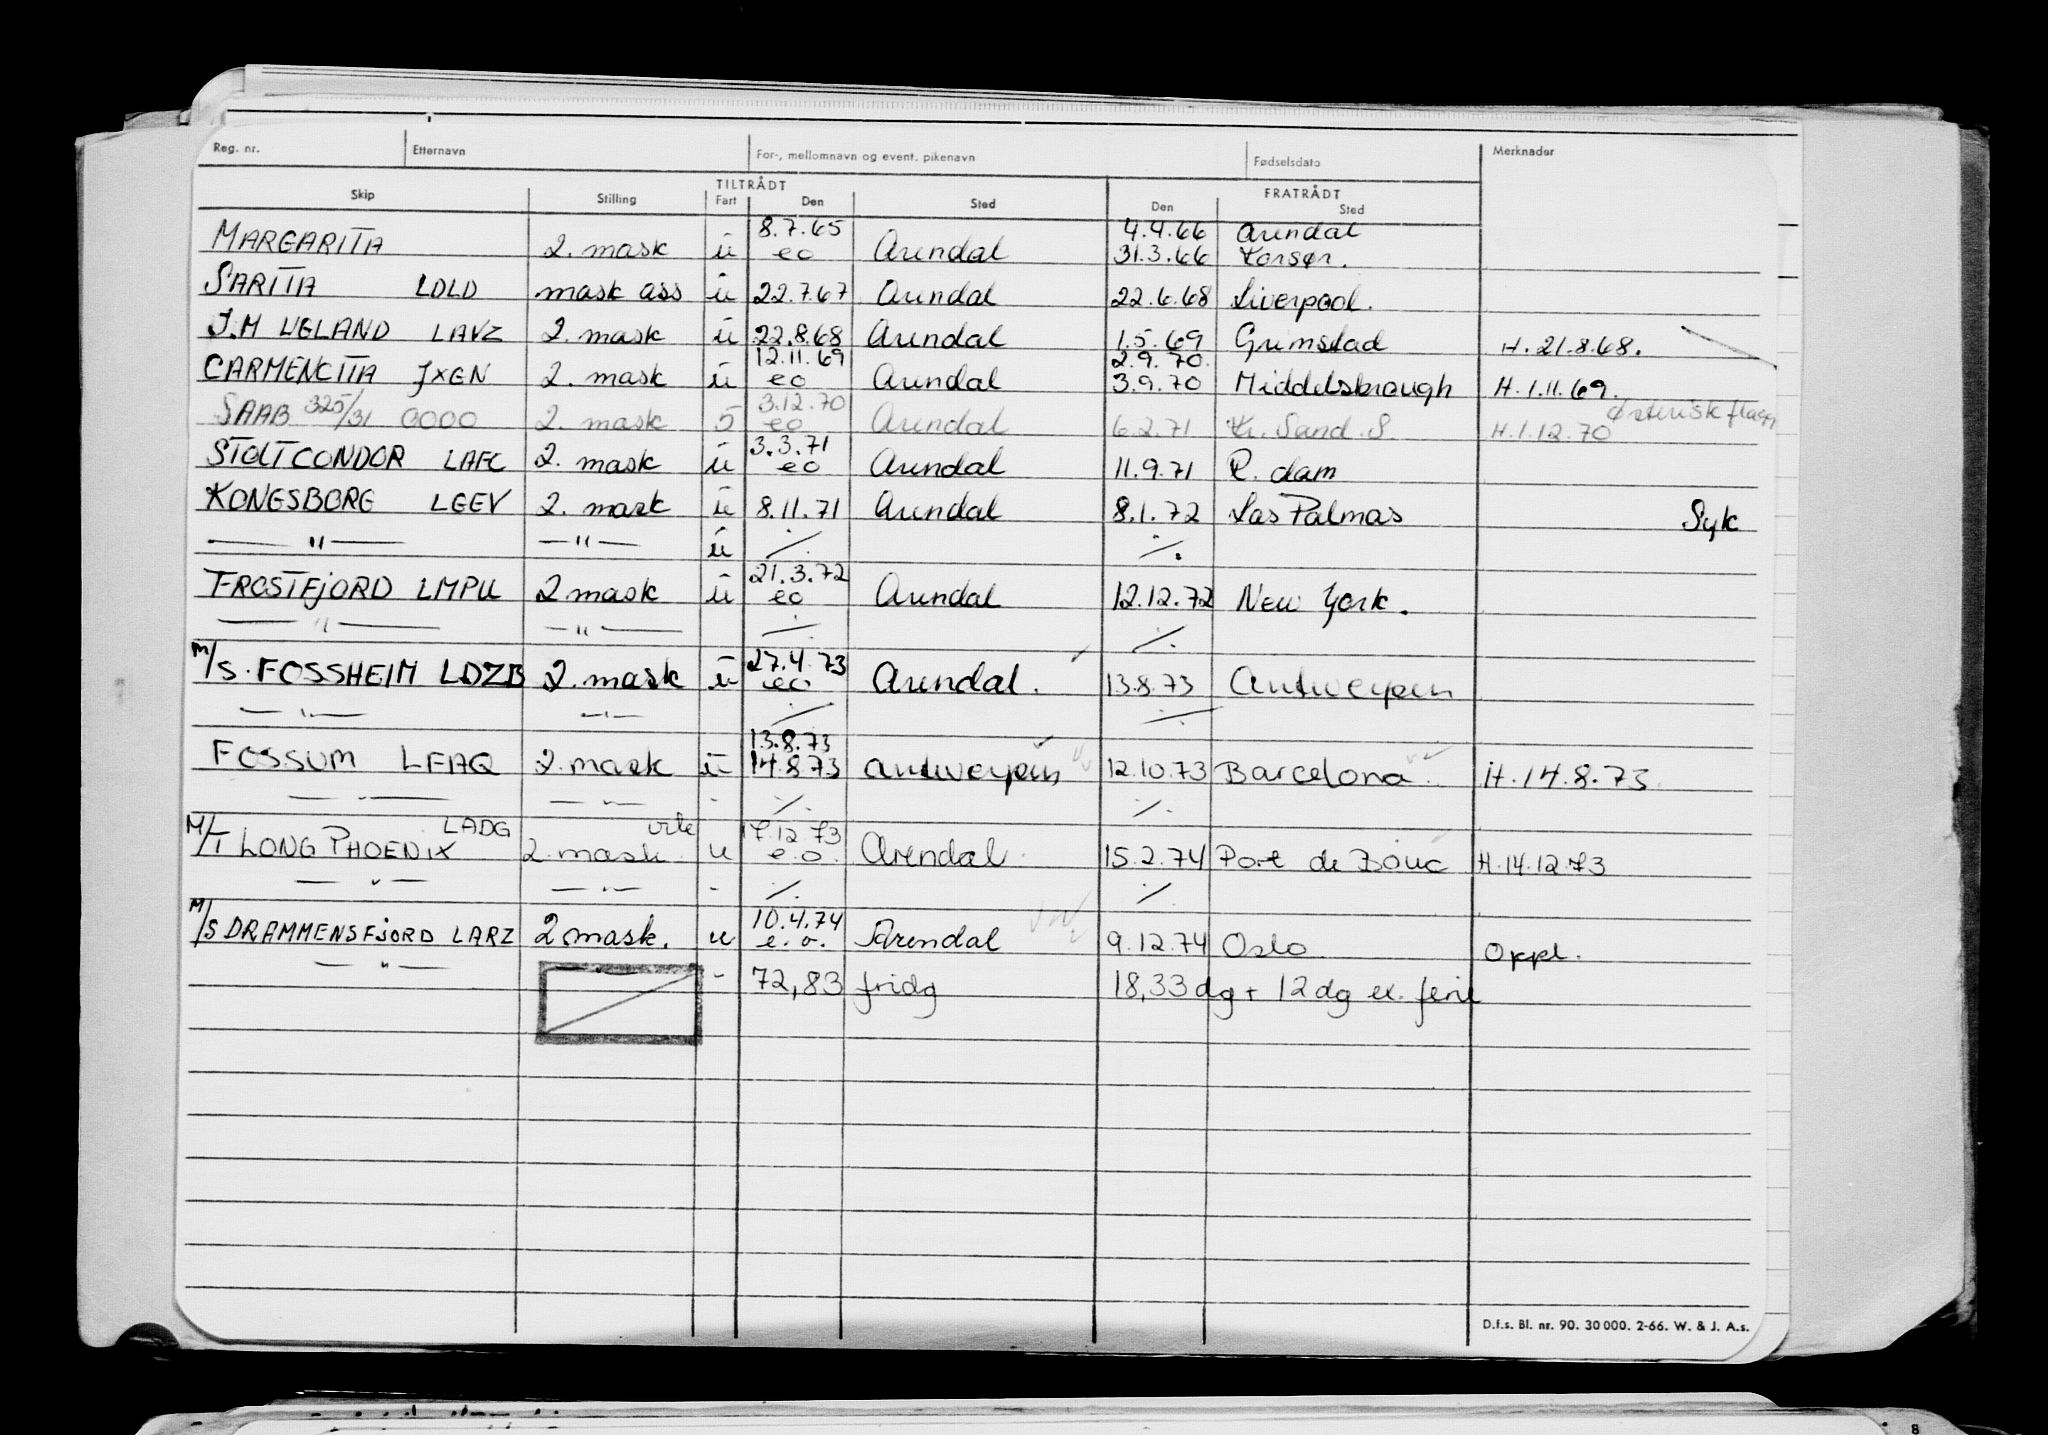 Reg. nr. Etternavn For-, mellomnavn og event. pikenavn Fødselsdato Merknader
TILTRÅDT FRATRÅDT
Skip Stilling Fart Den Sted Den Sted
8.7.65 4.4.66 Arendal
MARGARITA 2. mask ū eo Arendal 31.3.66 Korsør.
SARITA LDLD mask ass ū 22.7.67 Arendal 22.6.68 Liverpool.
J.M UGLAND LAVZ 2. mask ū 22.8.68 Arendal 1.5.69 Grimstad H. 21.8.68.
12.11.69 2.9.70.
CARMENCITA JXGN 2. mask ū eo Arendal 3.9.70 Middelsbrough H.1.11.69.
3.12.70 Østerisk flagg
SAAB 325/31 0000 2. mask 5 eo Arendal 6.2.71 Kr. Sand. S. H.1.12.70
3.3.71
STOLT CONDOR LAFC 2. mask ū eo Arendal 11.9.71 R. dam
KONGSBORG LGEV 2. mask ū 8.11.71 Arendal 8.1.72 Las Palmas Syk
— " — — " — ū ·/. ·/.
21.3.72
FROSTFJORD LMPU 2 mask ū eo Arendal 12.12.72 New York.
— " — — " — ·/. ·/.
27.4.73
M/S. FOSSHEIM LDZB 2. mask ū eo Arendal. 13.8.73 Antwerpen
— " — — " — ·/. ·/.
13.8.73
FOSSUM LFAQ 2. mask ū 14.8.73 Antwerpen 12.10.73 Barcelona. H.14.8.73.
— " — — " — - ·/. ·/.
LADG 17.12.73
M/T LONG PHOENIX 2. mask. u e.o. Arendal. 15.2.74 Port de Bouc H.14.12.73
— " — — " — - ·/. ·/.
10.4.74
M/S DRAMMENSFJORD LARZ 2 mask. u e.o. Arendal 9.12.74 Oslo Oppl.
— " — - 72,83 fridg 18,33 dg + 12 dg ex. ferie
D.f.s. Bl. nr. 90. 30 000. 2-66. W. & J. A.s.
8